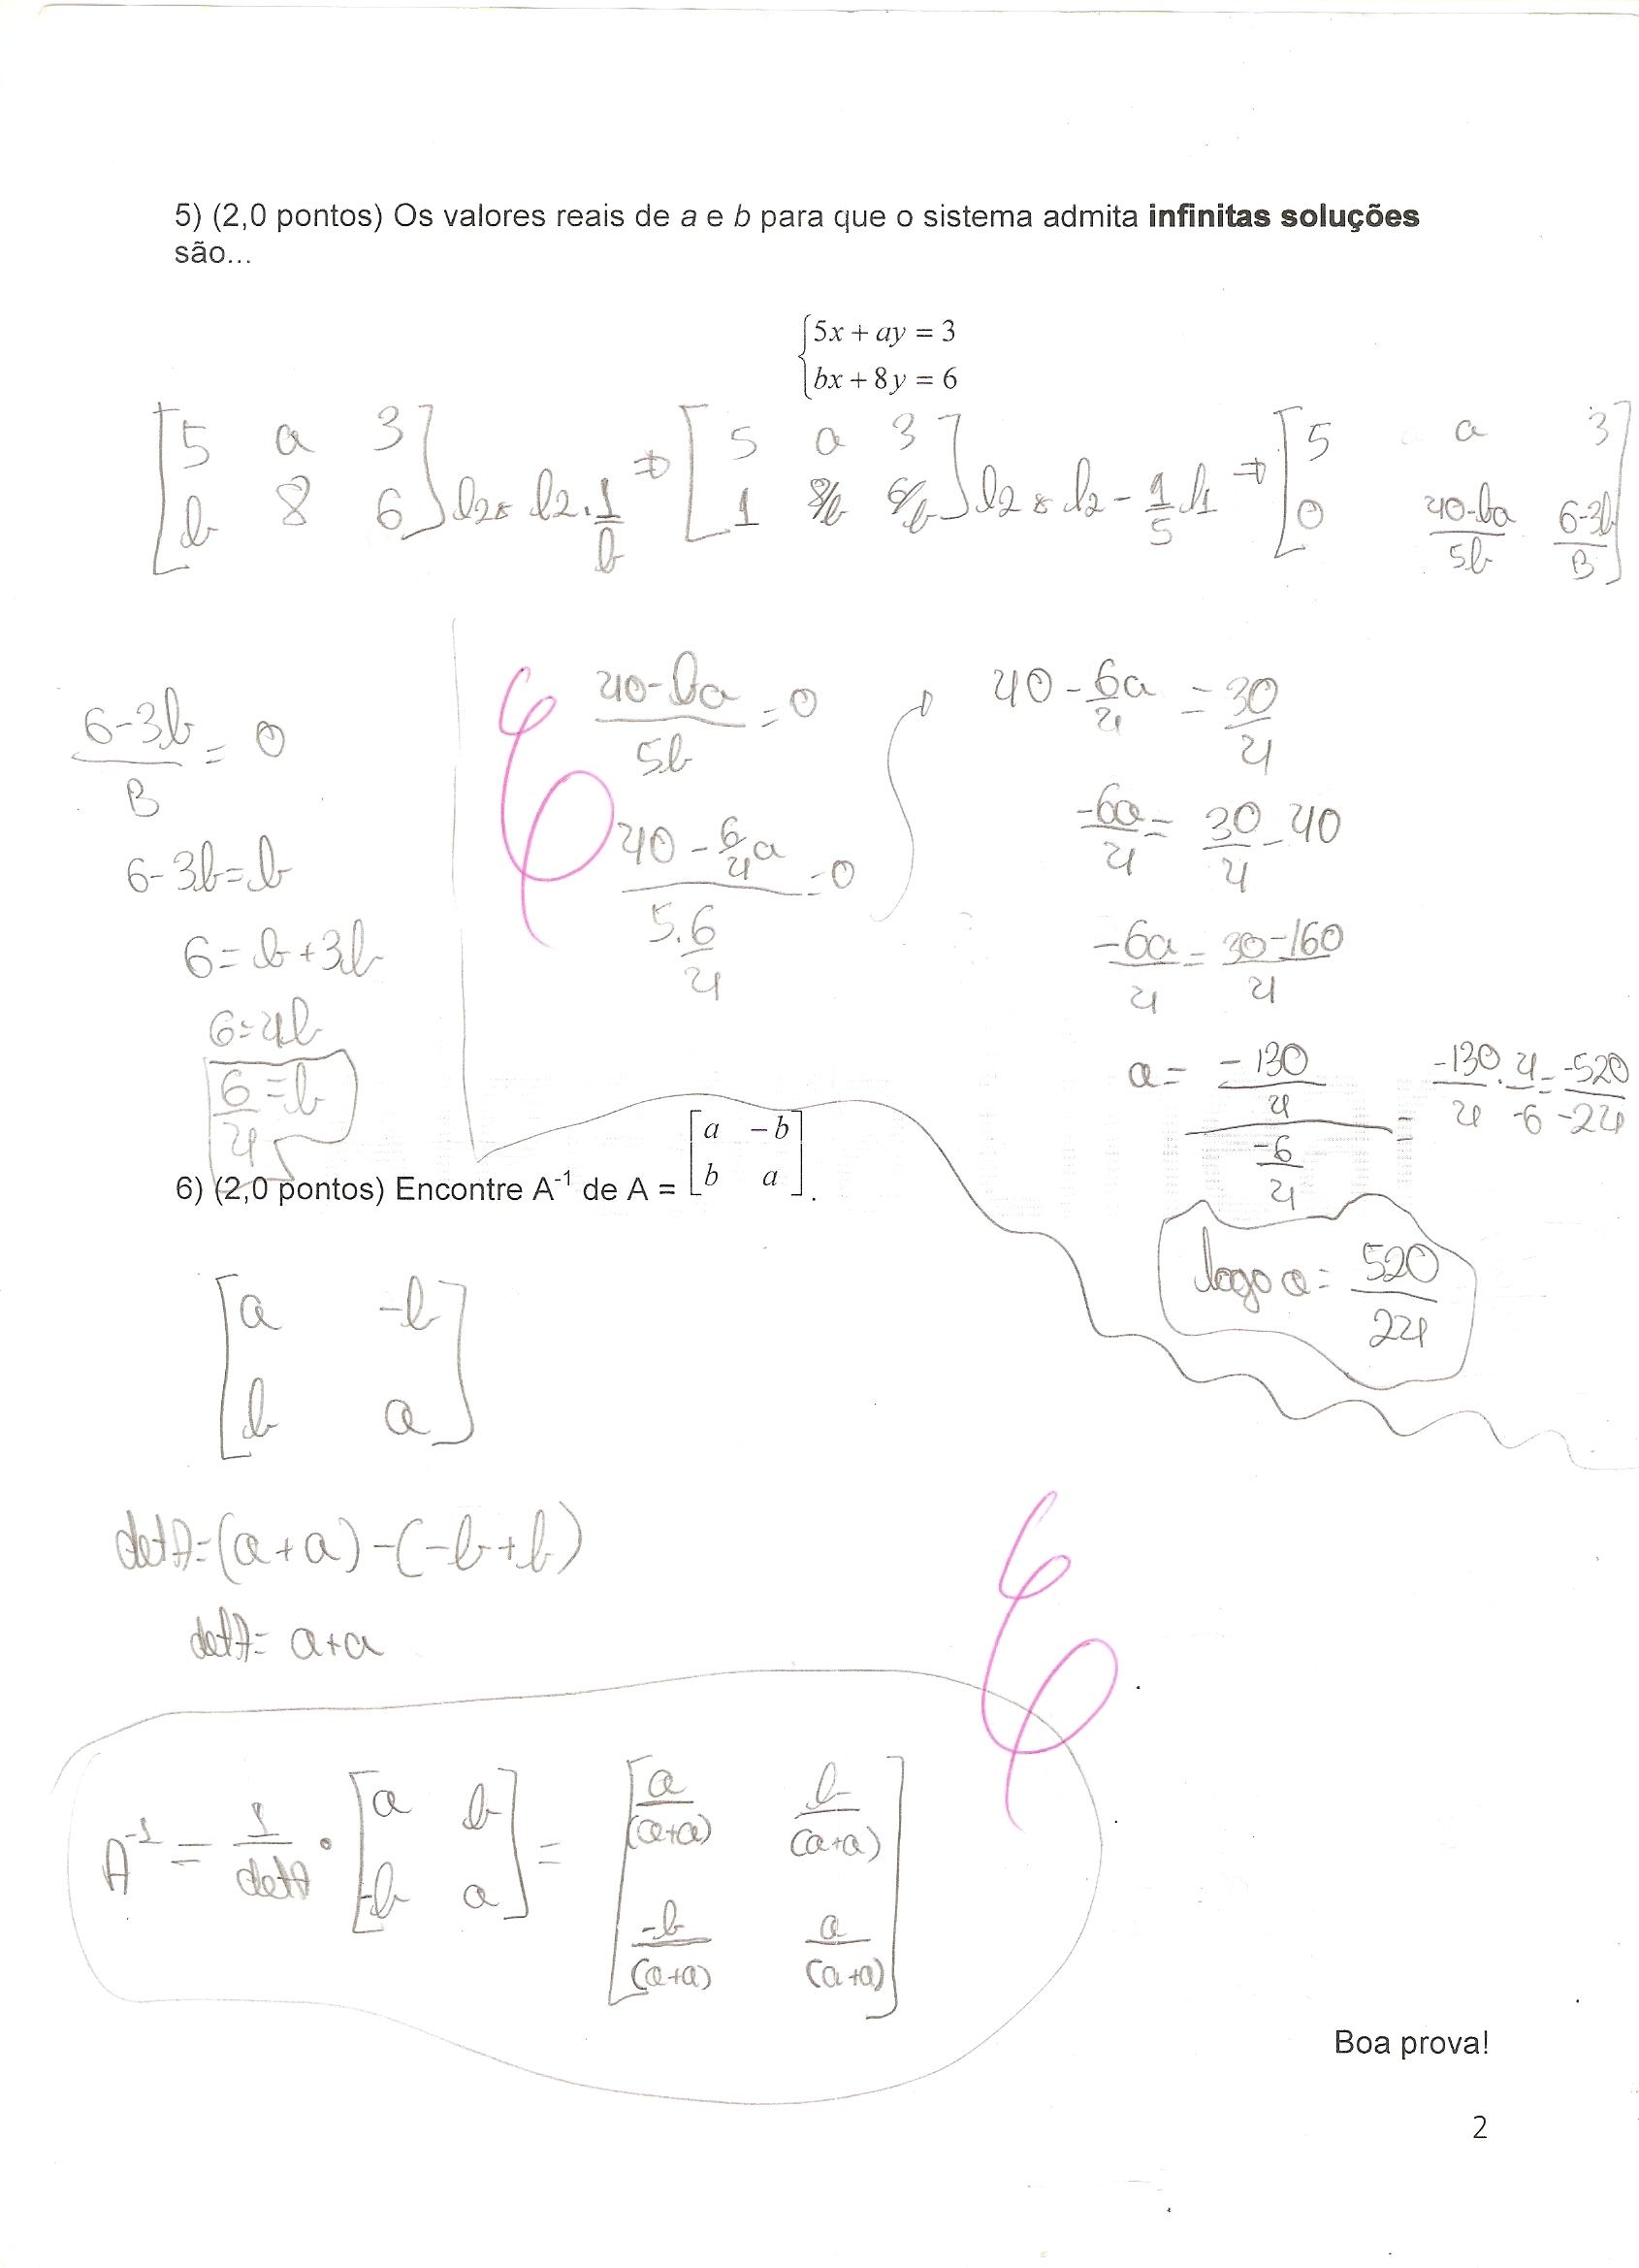 5) (2,0 pontos) Os valores reais de a e b para que o sistema admita infinitas soluções
são...
5x + ay = 3
bx + 8y = 6
[5 a 3] [5 a 3] [5 a 3]
[b 8 6] l2 ∝ l2 . 1/b ⇒ [1 8/b 6/b] l2 ∝ l2 - 1/5 l1 ⇒ [0 (40-ba)/5b (6-3b)/B]
(6-3b)/B = 0
6-3b=b
6=b+3b
6=4b
6/4 = b
(40-ba)/5b = 0
(40 - 6/4 a)/(5.6/4) = 0
40 - 6a/4 = 30/4
-6a/4 = 30/4 - 40
-6a/4 = (30-160)/4
a = (-130/4)/(-6/4) = -130/4 . 4/-6 = -520/-24
logo a = 520/24
6) (2,0 pontos) Encontre A⁻¹ de A = [a -b]
[b a].
[a -b]
[b a]
detA=(a+a)-(-b+b)
detA= a+a
A⁻¹ = 1/detA · [a b] = [a/(a+a) b/(a+a)]
[-b a] [-b/(a+a) a/(a+a)]
Boa prova!
2